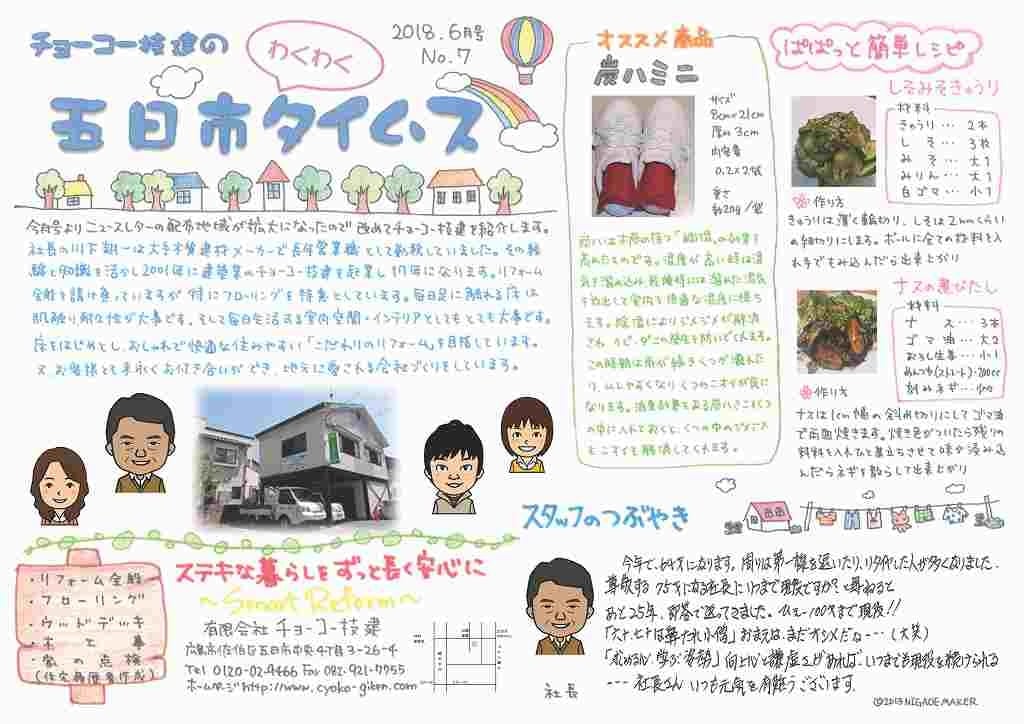 チョーコー技建の
わくわく
2018.6月号
No.7
五日市タイムス
今月号よりニュースレターの配布地域が拡大になったので改めてチョーコー技建を紹介します。
社長の川下朝一は大手木質建材メーカーで長年営業職として勤務していました。その経
験と知識を活かし2001年に建築業のチョーコー技建を起業し17年になります。リフォーム
全般を請け負っていますが特にフローリングを得意としています。毎日足に触れる床は
肌触り耐久性が大事です。そして毎日生活する室内空間・インテリアとしてもとても大事です。
床をはじめとし、おしゃれで快適な住みやすい「こだわりのリフォーム」を目指しています。
又、お客様とも末永くお付き合いができ、地元に愛される会社づくりをしています。
オススメ商品
炭ハミニ
サイズ
8cm×21cm
厚み 3cm
内容量
0.2×2袋
重さ
約20g/袋
高めたものです。湿度が高い時は湿
気を溜め込み、乾燥時には溜めた湿気
を放出して室内を快適な湿度に保ち
ます。除湿によりジメジメが解消
され、カビ・ダニの発生を防いでくれます。
この時期は雨が続きくつが濡れた
り、ムレやすくなり、くつのニオイが気に
なります。消臭効果もある炭ハミニをくつ
の中に入れておくと、くつの中のジメジメ
とニオイを解消してくれます。
ぱぱっと簡単レシピ
しそみそきゅうり
材料
きゅうり… 2本
しそ… 3枚
みそ… 大1
みりん… 大1
白ゴマ… 小1
作り方
きゅうりは薄く輪切り、しそは2mmくらい
の細切りにします。ボールに全ての材料を入
れ手でもみ込んだら出来上がり
ナスの煮びたし
材料
ナス… 3本
ゴマ油… 大2
おろし生姜… 小1
めんつゆ(ストレート)…200cc
刻みネギ…
作り方
ナスは1cm幅の斜め切りにしてゴマ油
で両面焼きます。焼き色がついたら残りの
材料を入れひと煮立ちさせて味が染み込
んだらネギを散らして出来上がり
スタッフのつぶやき
今年で、 になります。周りは第一線を退いたり、リタイヤした人が多くなりました。
尊敬する75才になる社長にいつまで現役ですか?と尋ねると
あと25年、即答で返ってきました。 100才まで現役!!
「六十、七十は鼻たれ小僧」おまえは、まだオシメだな…(大笑)
「求める心、学ぶ姿勢」向上心と謙虚さがあれば、いつまでも現役を続けられる
…社長さん いつも元気を有難うございます。
社長
ステキな暮らしをずっと長く安心に
～Smart Reform～
有限会社チョーコー技建
広島市佐伯区五日市中央4丁目3-26-4
Tel 0120-02-9466 Fax 082-921-9955
ホームページhttp://www.cyoko-giken.com
・リフォーム全般
・フローリング
・ウッドデッキ
・木工事
・家の点検
(住宅履歴書作成)
©2013NIGAOE MAKER